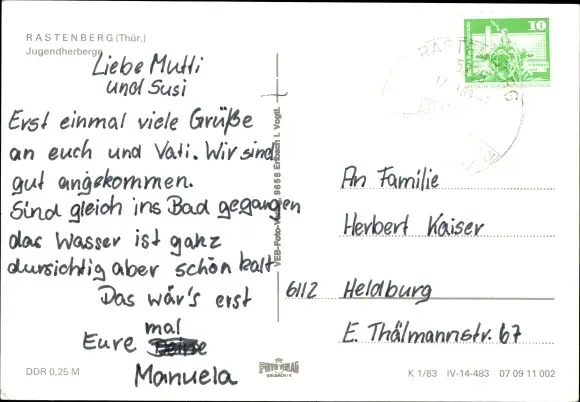 RASTENBERG (Thür.)
Jugendherberge
Liebe Mutti
und Susi
Erst einmal viele Grüße
an euch und Vati. Wir sind
gut angekommen.
Sind gleich ins Bad gegangen
das Wasser ist ganz
dursichtig aber schön kalt
Das wär's erst
mal
Eure
Manuela
DDR 0,25 M
10
An Familie
Herbert Kaiser
6112 Heldburg
E. Thälmannstr. 67
K 1/83 IV-14-483 07 09 11 002